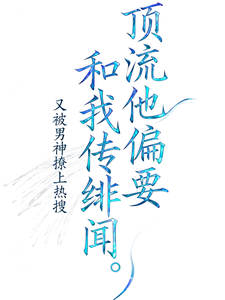 顶流他偏要
和我传绯闻。
又被男神撩上热搜